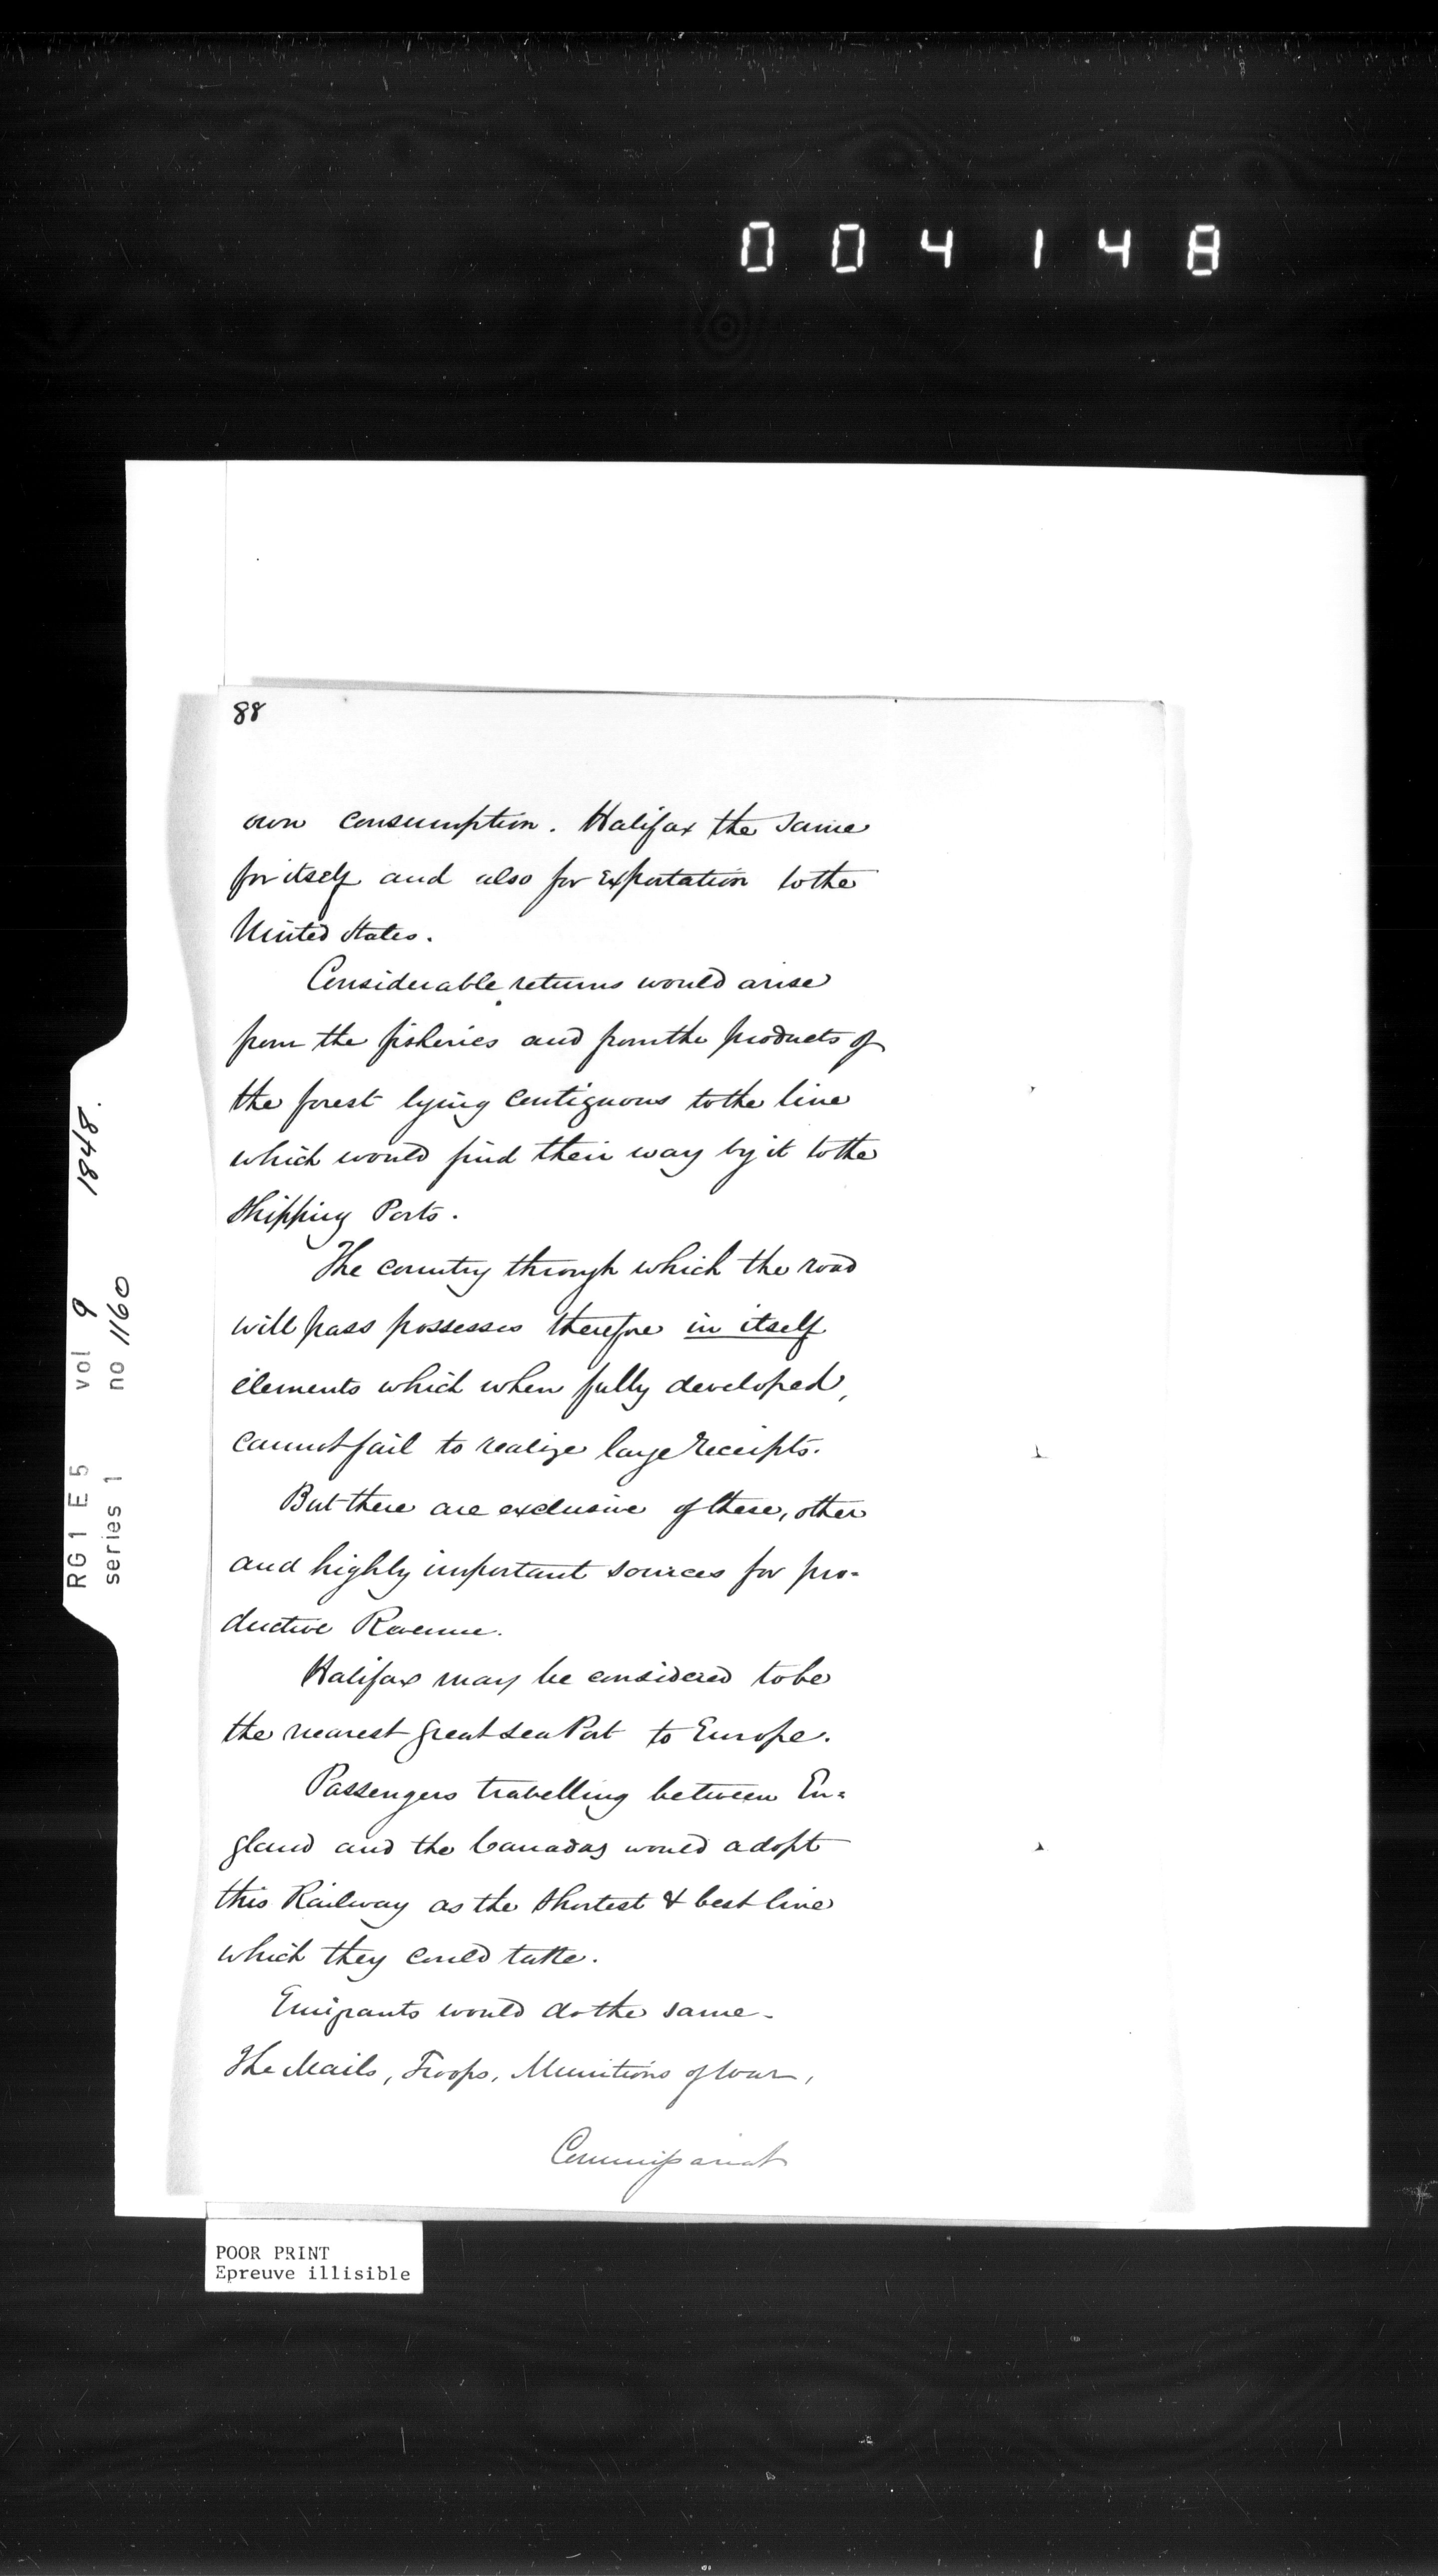 004148
88
own consumption. Halifax the same
for itself and also for Exportation to the
United States.
Considerable returns would arise
from the fisheries and from the products of
the forest lying contiguous to the line
which would find their way by it to the
Shipping Ports.
The country through which the road
will pass possesses therefore in itself
elements which when fully developed,
cannot fail to realize large receipts.
But there are exclusive of these, other
and highly important sources for pro=
ductive Revenue.
Halifax may be considered to be
the nearest great sea Port to Europe.
Passengers travelling between En=
gland and the Canadas would adopt
this Railway as the Shortest & best line
which they could take.
Emigrants would do the same.
The Mails, Troops, Munitions of War,
Commissariat
RG1 E5 vol 9 1848.
series 1 no 1160
POOR PRINT
Epreuve illisible